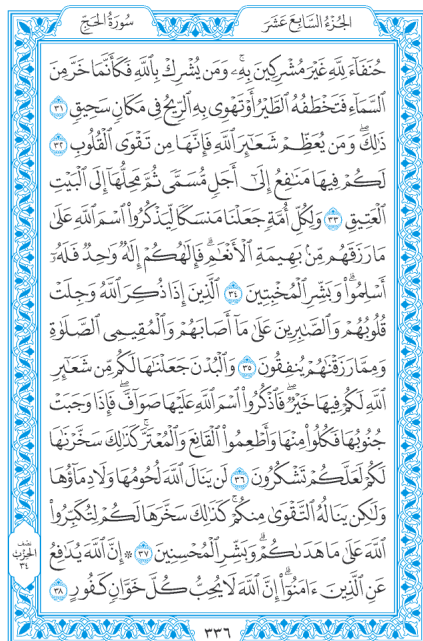 سُورَةُ الحَجِّ
الجُزْءُ السَّابِعَ عَشَرَ
حُنَفَآءَ لِلَّهِ غَيۡرَ مُشۡرِكِينَ بِهِۦۚ وَمَن يُشۡرِكۡ بِٱللَّهِ فَكَأَنَّمَا خَرَّ مِنَ
ٱلسَّمَآءِ فَتَخۡطَفُهُ ٱلطَّيۡرُ أَوۡ تَهۡوِي بِهِ ٱلرِّيحُ فِي مَكَانٖ سَحِيقٖ ٣١
ذَٰلِكَۖ وَمَن يُعَظِّمۡ شَعَٰٓئِرَ ٱللَّهِ فَإِنَّهَا مِن تَقۡوَى ٱلۡقُلُوبِ ٣٢
لَكُمۡ فِيهَا مَنَٰفِعُ إِلَىٰٓ أَجَلٖ مُّسَمّٗى ثُمَّ مَحِلُّهَآ إِلَى ٱلۡبَيۡتِ
ٱلۡعَتِيقِ ٣٣ وَلِكُلِّ أُمَّةٖ جَعَلۡنَا مَنسَكٗا لِّيَذۡكُرُواْ ٱسۡمَ ٱللَّهِ عَلَىٰ
مَا رَزَقَهُم مِّنۢ بَهِيمَةِ ٱلۡأَنۡعَٰمِۗ فَإِلَٰهُكُمۡ إِلَٰهٞ وَٰحِدٞ فَلَهُۥٓ
أَسۡلِمُواْۗ وَبَشِّرِ ٱلۡمُخۡبِتِينَ ٣٤ ٱلَّذِينَ إِذَا ذُكِرَ ٱللَّهُ وَجِلَتۡ
قُلُوبُهُمۡ وَٱلصَّٰبِرِينَ عَلَىٰ مَآ أَصَابَهُمۡ وَٱلۡمُقِيمِي ٱلصَّلَوٰةِ
وَمِمَّا رَزَقۡنَٰهُمۡ يُنفِقُونَ ٣٥ وَٱلۡبُدۡنَ جَعَلۡنَٰهَا لَكُم مِّن شَعَٰٓئِرِ
ٱللَّهِ لَكُمۡ فِيهَا خَيۡرٞۖ فَٱذۡكُرُواْ ٱسۡمَ ٱللَّهِ عَلَيۡهَا صَوَآفَّۖ فَإِذَا وَجَبَتۡ
جُنُوبُهَا فَكُلُواْ مِنۡهَا وَأَطۡعِمُواْ ٱلۡقَانِعَ وَٱلۡمُعۡتَرَّۚ كَذَٰلِكَ سَخَّرۡنَٰهَا
لَكُمۡ لَعَلَّكُمۡ تَشۡكُرُونَ ٣٦ لَن يَنَالَ ٱللَّهَ لُحُومُهَا وَلَا دِمَآؤُهَا
وَلَٰكِن يَنَالُهُ ٱلتَّقۡوَىٰ مِنكُمۡۚ كَذَٰلِكَ سَخَّرَهَا لَكُمۡ لِتُكَبِّرُواْ
ٱللَّهَ عَلَىٰ مَا هَدَىٰكُمۡۗ وَبَشِّرِ ٱلۡمُحۡسِنِينَ ٣٧ ۞ إِنَّ ٱللَّهَ يُدَٰفِعُ
عَنِ ٱلَّذِينَ ءَامَنُوٓاْۗ إِنَّ ٱللَّهَ لَا يُحِبُّ كُلَّ خَوَّانٖ كَفُورٍ ٣٨
نصف
الحزب
٣٤
٣٣٦